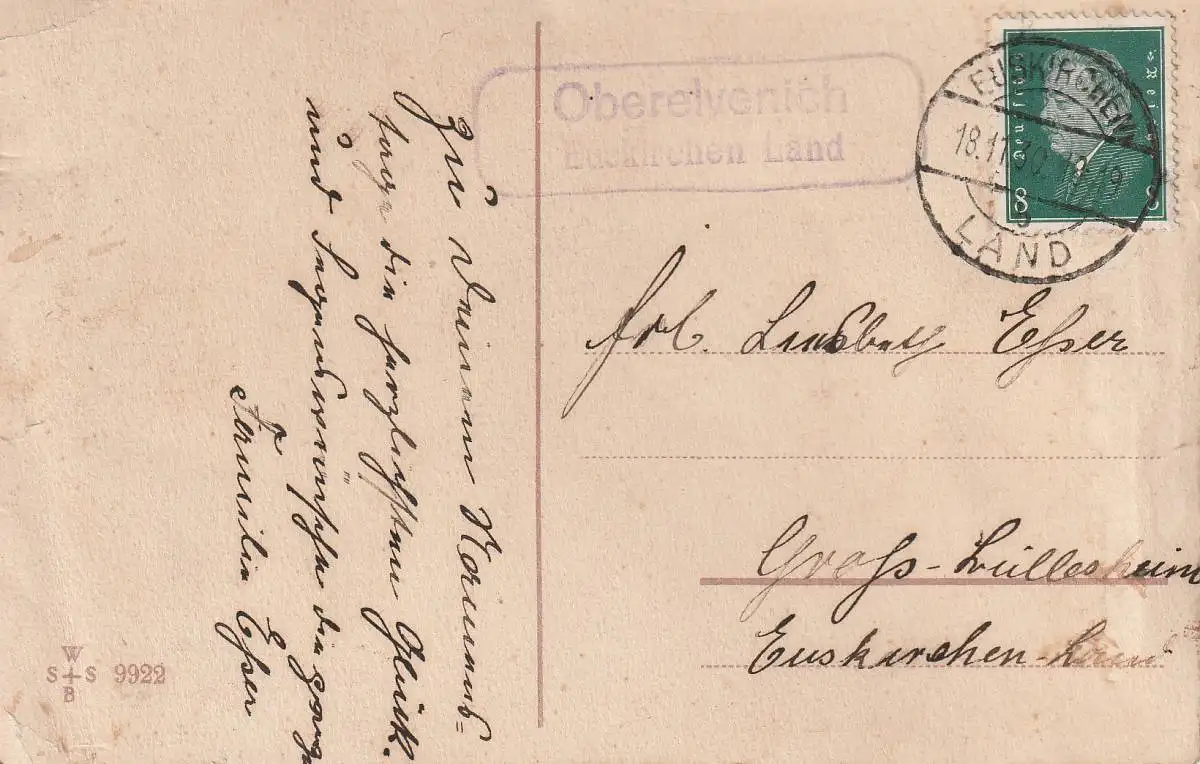 Zu Deinem Namens=
tage die herzlichsten Glück
und Segenswünsche die ganze
Familie Eßer
Oberelvenich
Euskirchen Land
EUSKIRCHEN
18.11.30.
LAND
Deutsches Reich
8 8
Frl. Liesbeth Eßer
Groß-Büllesheim
Euskirchen-Land
W
S+S 9922
B